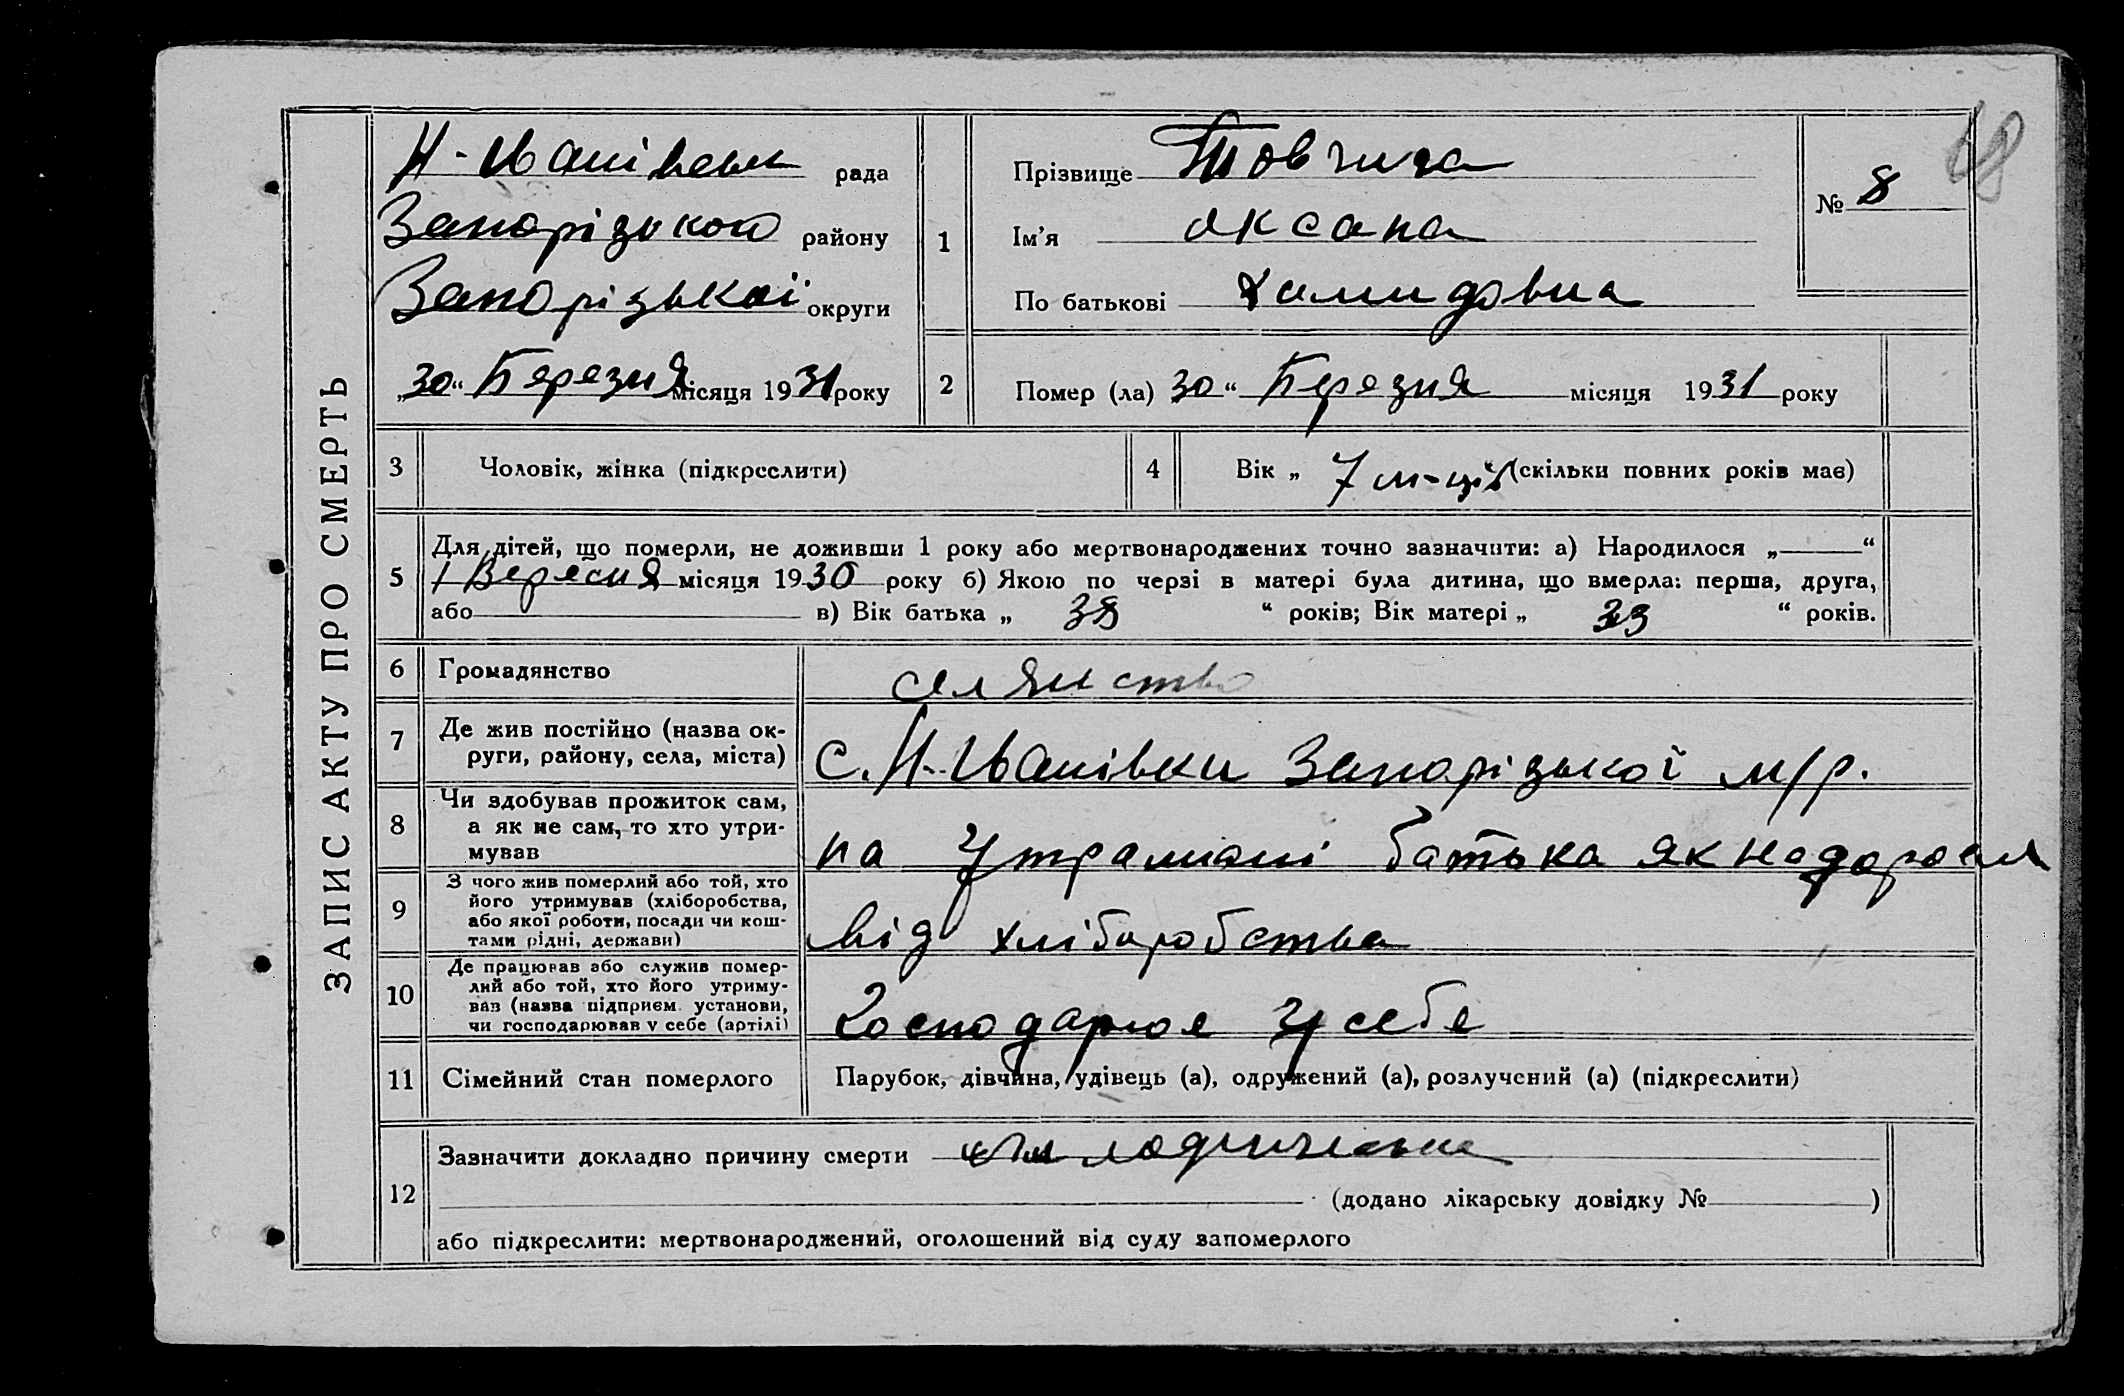 ЗАПИС АКТУ ПРО СМЕРТЬ
48
Н-Іванівськ рада
Запорізького району
Запорізької округи
„30“ Березня місяця 1931 року
1
Прізвище Товчига
Ім’я Оксана
По батькові
№ 8
2
Помер (ла) 30“ Березня місяця 1931 року
3
Чоловік, жінка (підкреслити)
4
Вік „ 7 м-ців (скільки повних років має)
5
Для дітей, що померли, не доживши 1 року або мертвонароджених точно зазначити: а) Народилося „——“
1 Вересня місяця 1930 року б) Якою по черзі в матері була дитина, що вмерла: перша, друга,
або в) Вік батька „ 38 “ років; Вік матері „ 33 “ років.
6
Громадянство
селянство
7
Де жив постійно (назва ок-
руги, району, села, міста)
с. Н-Іванівки Запорізької м/р.
8
Чи здобував прожиток сам,
а як не сам, то хто утри-
мував
на утримані батька як
9
З чого жив померлий або той, хто
його утримував (хліборобства,
або якої роботи, посади чи кош-
тами рідні, держави)
від хліборобства
10
Де працював або служив помер-
лий або той, хто його утриму-
вав (назва підприєм. установи,
чи господарював у себе (артілі)
Господарює у себе
11
Сімейний стан померлого
Парубок, дівчина, удівець (а), одружений (а), розлучений (а) (підкреслити)
12
Зазначити докладно причину смерти
(додано лікарську довідку № )
або підкреслити: мертвонароджений, оголошений від суду запомерлого